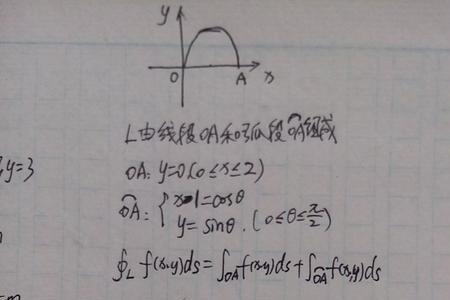 y
O A x
L由线段OA和弧段OA组成
y=3
OA: y=0(0≤x≤2)
OA: { x-1=cosθ
y=sinθ. (0≤θ≤π/2)
∮L f(x,y)ds=∫OA f(x,y)ds+∫OA f(x,y)ds